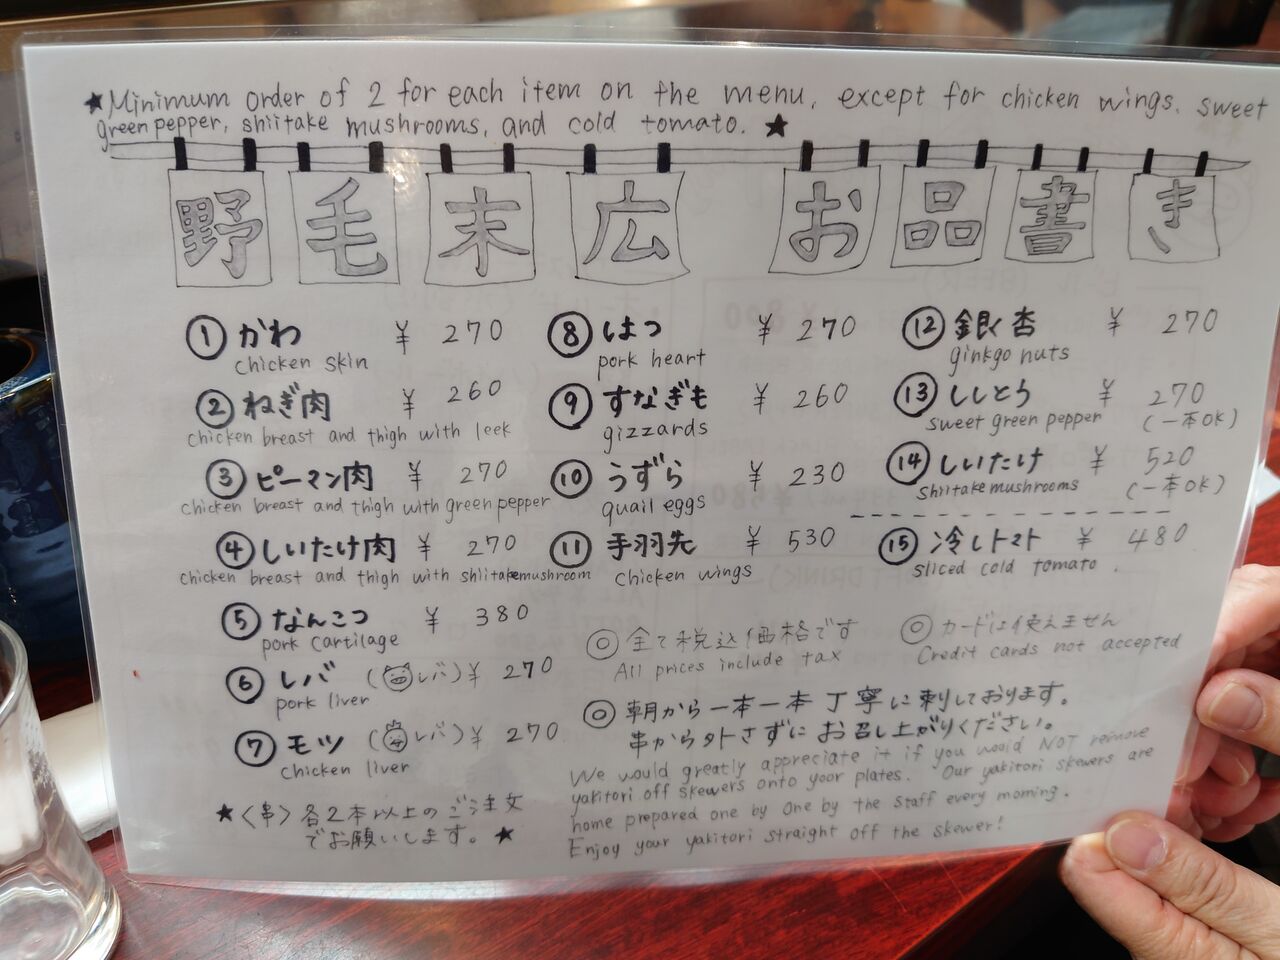 ★Minimum order of 2 for each item on the menu, except for chicken wings, sweet
green pepper, shiitake mushrooms, and cold tomato. ★
野毛末広 お品書き
① かわ ¥ 270
chicken skin
② ねぎ肉 ¥ 260
chicken breast and thigh with leek
③ ピーマン肉 ¥ 270
chicken breast and thigh with green pepper
④ しいたけ肉 ¥ 270
chicken breast and thigh with shiitakemushroom
⑤ なんこつ ¥ 380
pork cartilage
⑥ レバ (レバ) ¥ 270
pork liver
⑦ モツ (レバ) ¥ 270
chicken liver
★〈串〉各2本以上のご注文
でお願いします。★
⑧ はつ ¥ 270
pork heart
⑨ すなぎも ¥ 260
gizzards
⑩ うずら ¥ 230
quail eggs
⑪ 手羽先 ¥ 530
chicken wings
⑫ 銀杏 ¥ 270
ginkgo nuts
⑬ ししとう ¥ 270
sweet green pepper (一本OK)
⑭ しいたけ ¥ 520
shiitake mushrooms (一本OK)
⑮ 冷しトマト ¥ 480
sliced cold tomato.
◎ 全て税込価格です
All prices include tax
◎ カードは使えません
Credit cards not accepted
◎ 朝から一本一本丁寧に刺しております。
串から外さずにお召し上がりください。
We would greatly appreciate it if you would NOT remove
yakitori off skewers onto your plates. Our yakitori skewers are
home prepared one by one by the staff every morning.
Enjoy your yakitori straight off the skewer!